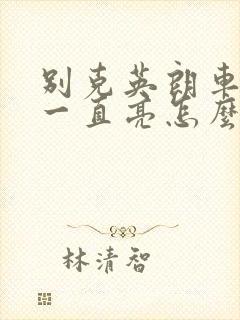 别克英朗車
一直亮怎麼
林清智